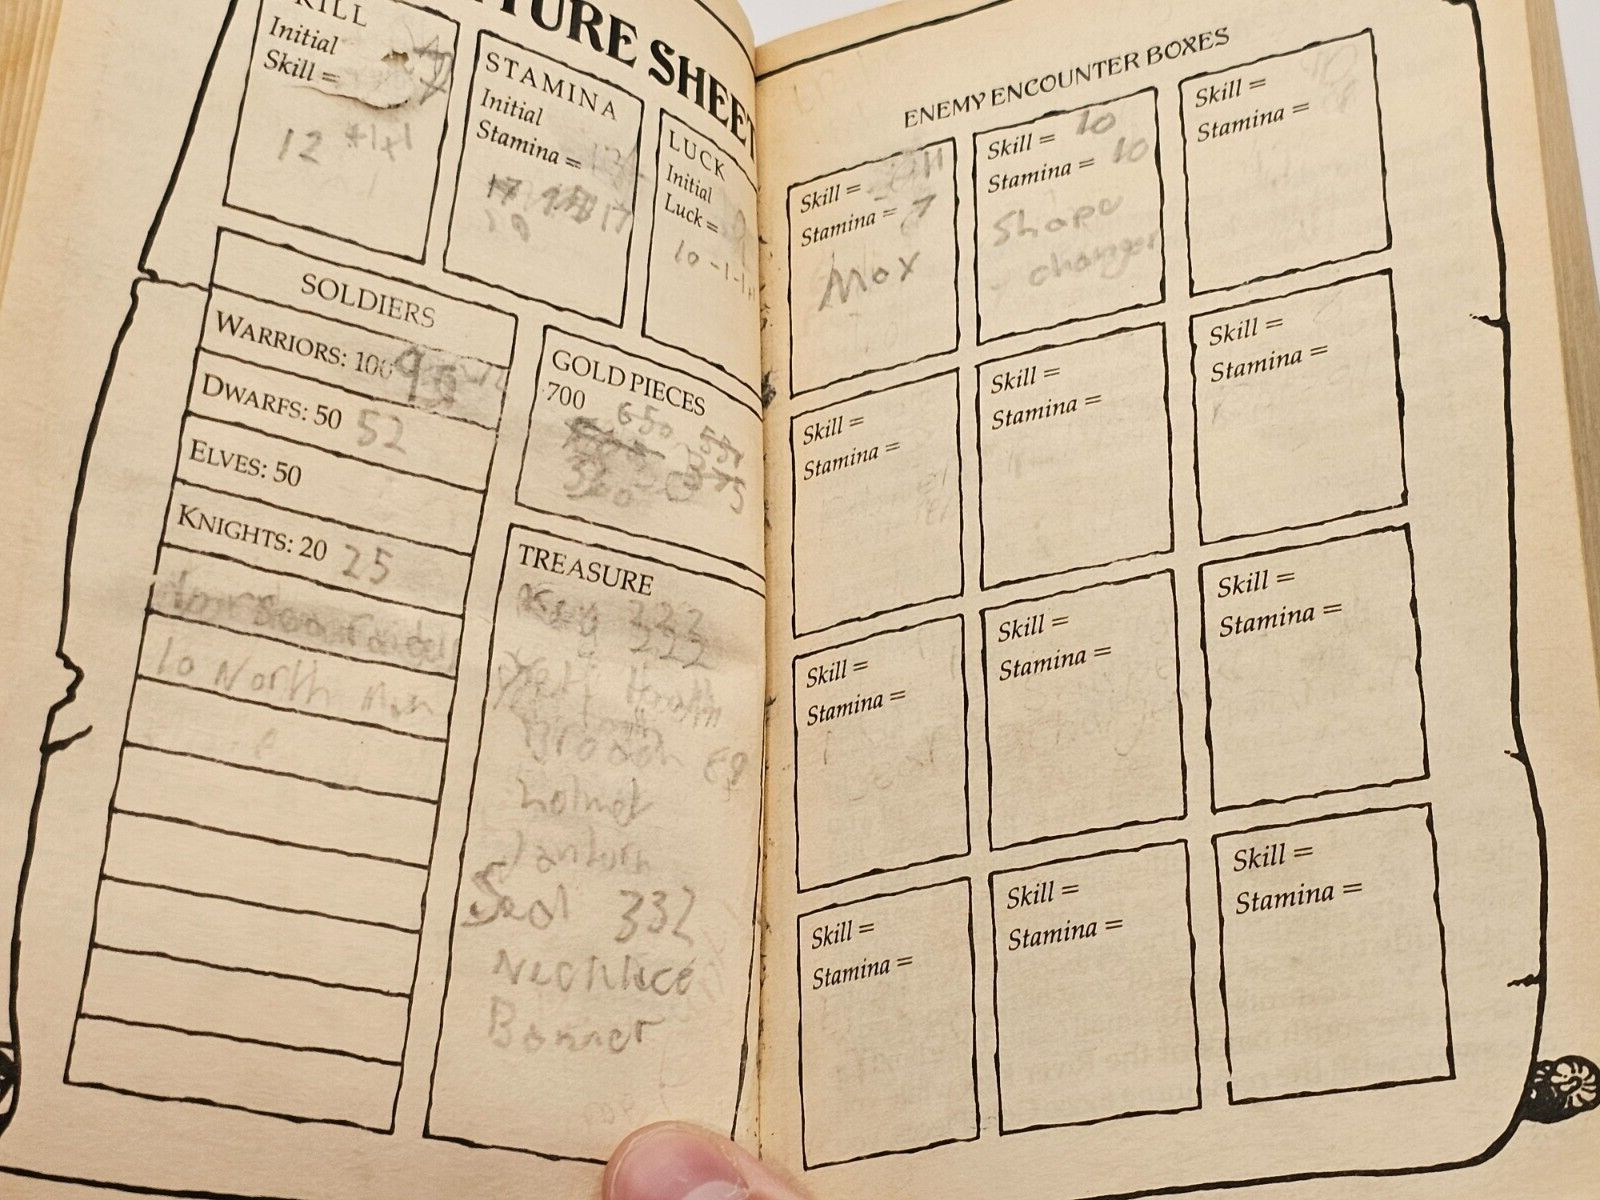 TURE SHEET
KILL
Initial
Skill =
12 +1+1
STAMINA
Initial
Stamina =
17 17
LUCK
Initial
Luck =
10 -1-1
SOLDIERS
WARRIORS: 100 95
DWARFS: 50 52
ELVES: 50
KNIGHTS: 20 25
10 North Man
GOLD PIECES
700 650
TREASURE
Key 222
222
Brooch
helmet
Seal 332
Necklace
Banner
ENEMY ENCOUNTER BOXES
Skill = 11
Stamina = 7
Max
Skill = 10
Stamina = 10
Shape
changer
Skill =
Stamina =
Skill =
Stamina =
Skill =
Stamina =
Skill =
Stamina =
Skill =
Stamina =
Skill =
Stamina =
Skill =
Stamina =
Skill =
Stamina =
Skill =
Stamina =
Skill =
Stamina =